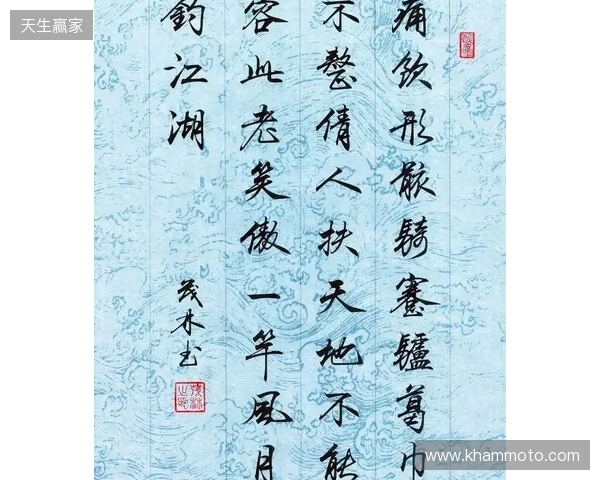 天生赢家
痛飲形骸騎蹇驢葛巾
不整倩人扶天地不能
容此老笑傲一竿風月
釣江湖
茂林书
www.khammoto.com